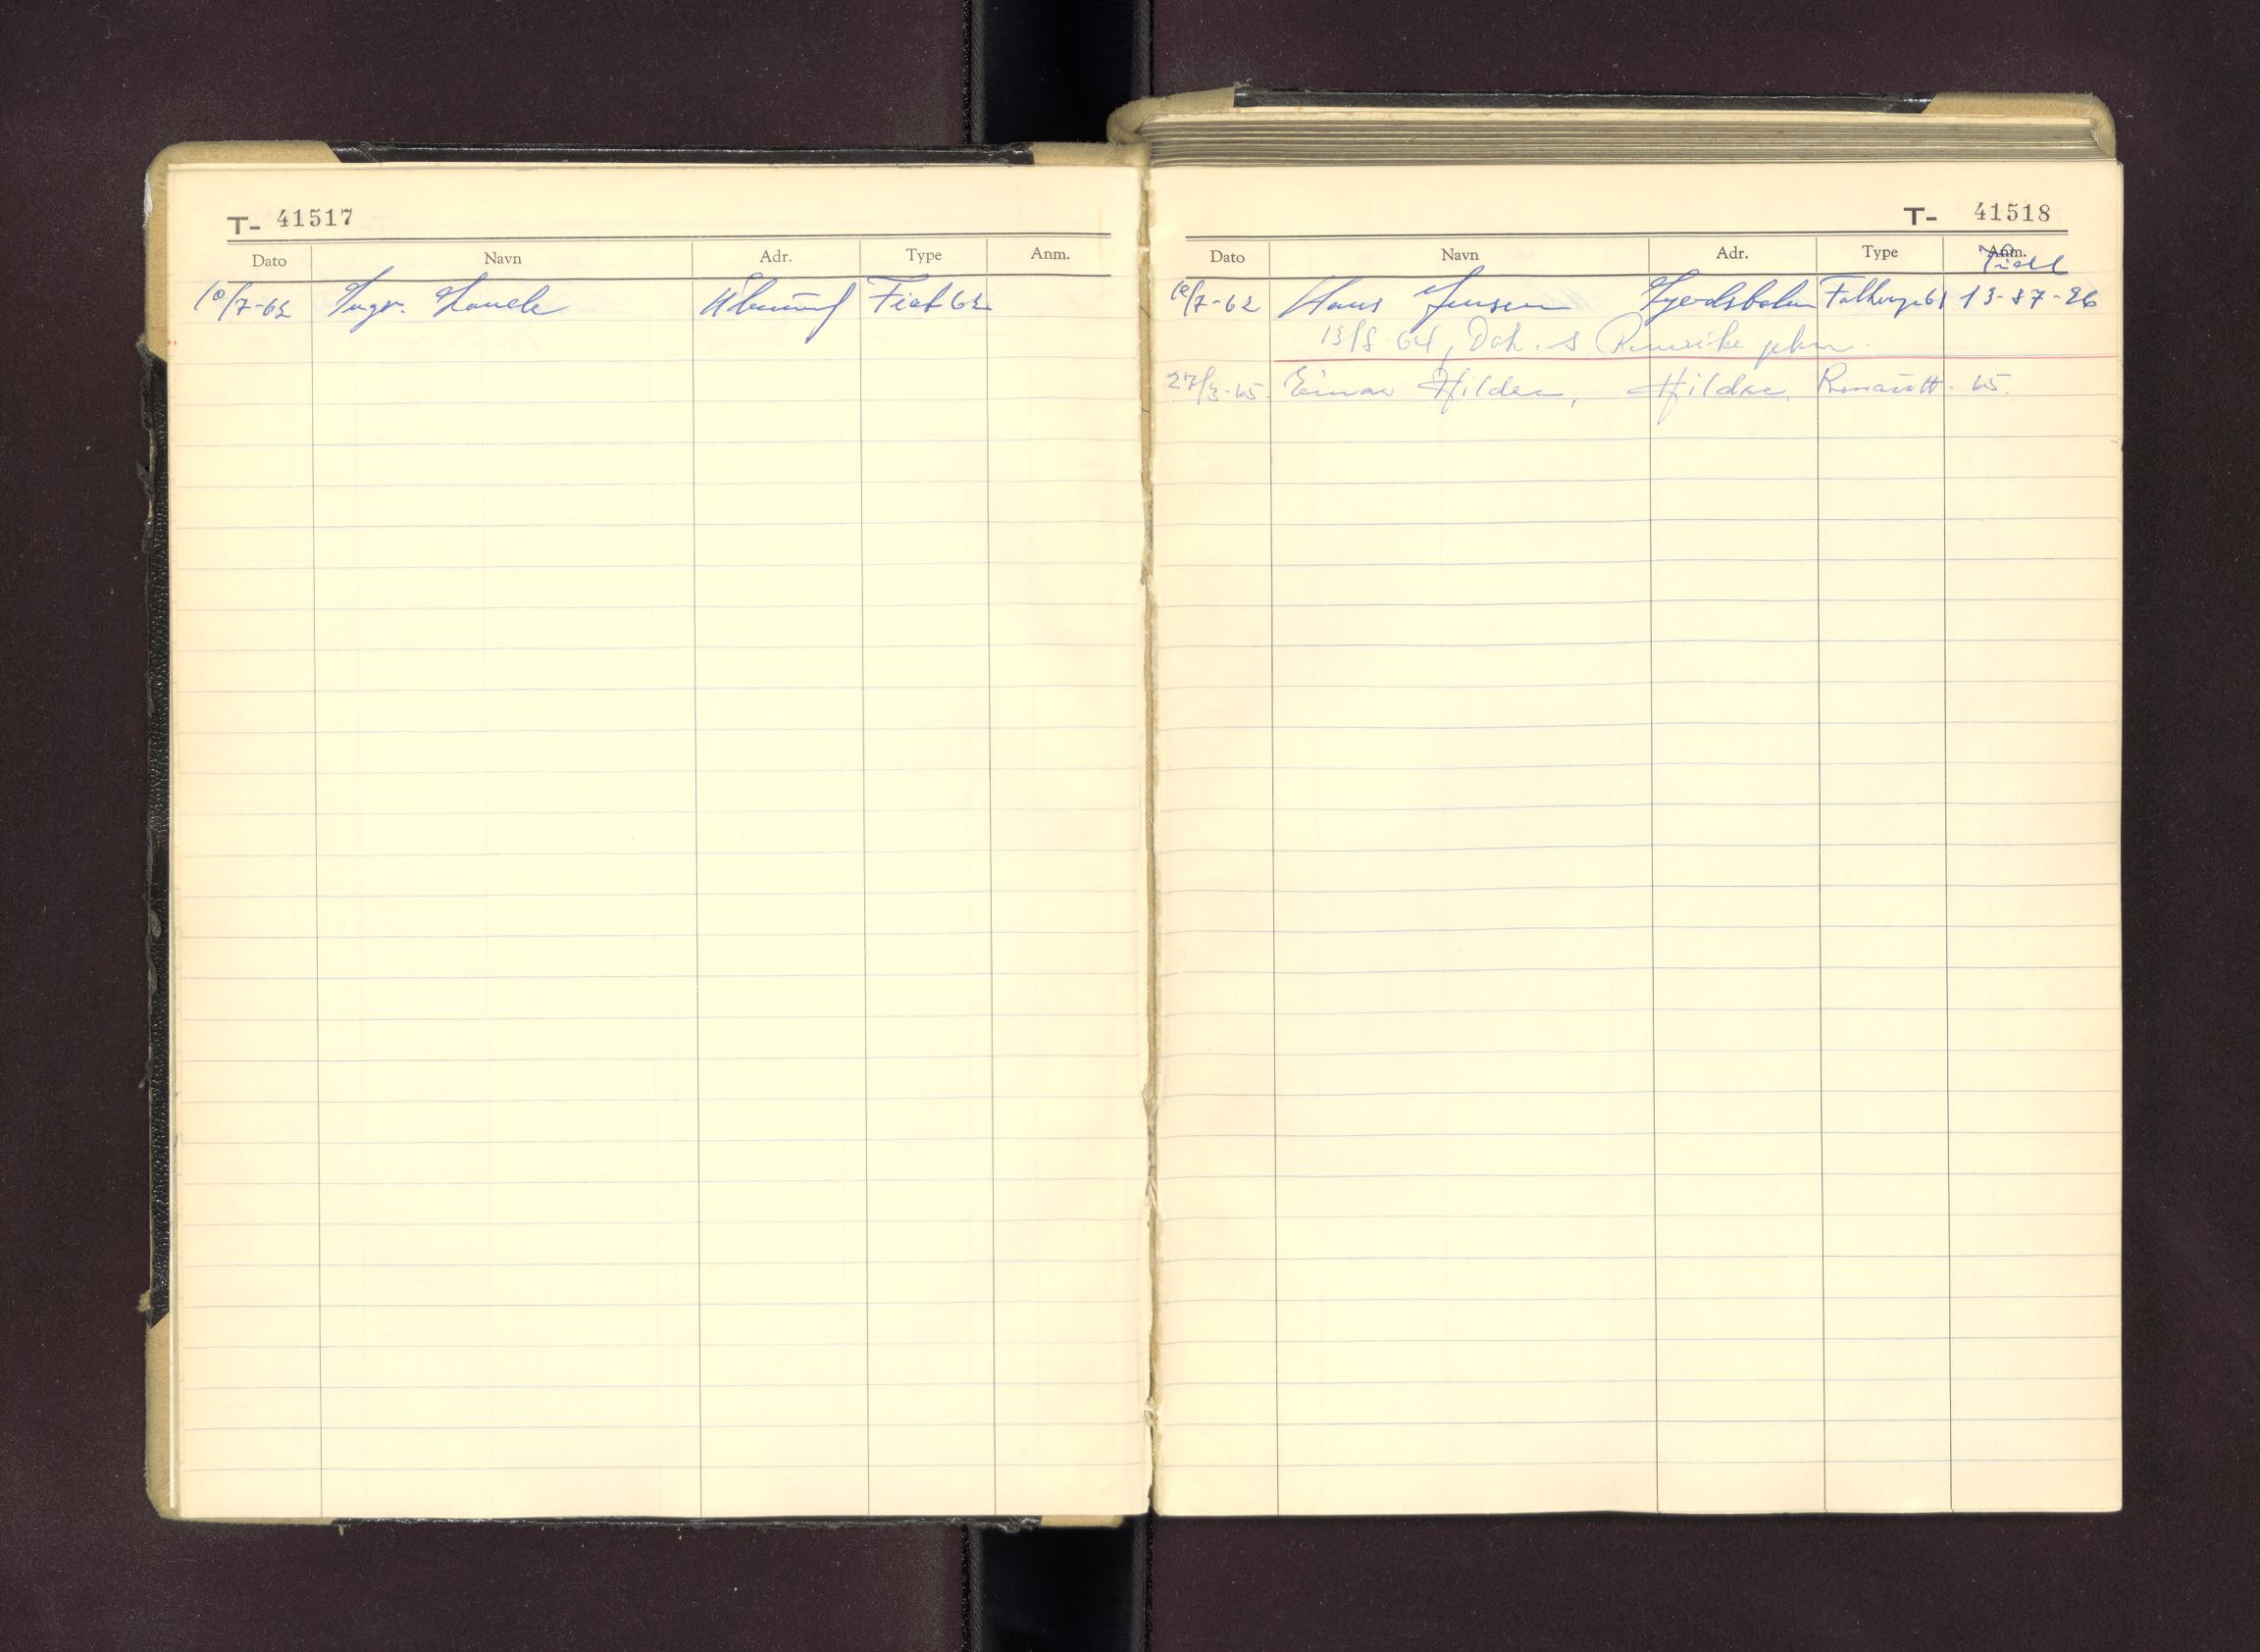 T- 41517
Dato Navn Adr. Type Anm.
10/7-62 Fiat 62
T- 41518
Dato Navn Adr. Type Anm.
10/7-62 Hans Jensen 61 13-87-26
13/8 64, Dok. s
27/3-65. Einar Hildre, Hildre. Renault. 65.